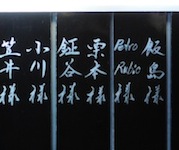 飯島様
Pedro Rubio様
栗本様
鉦谷様
小川様
笠井様